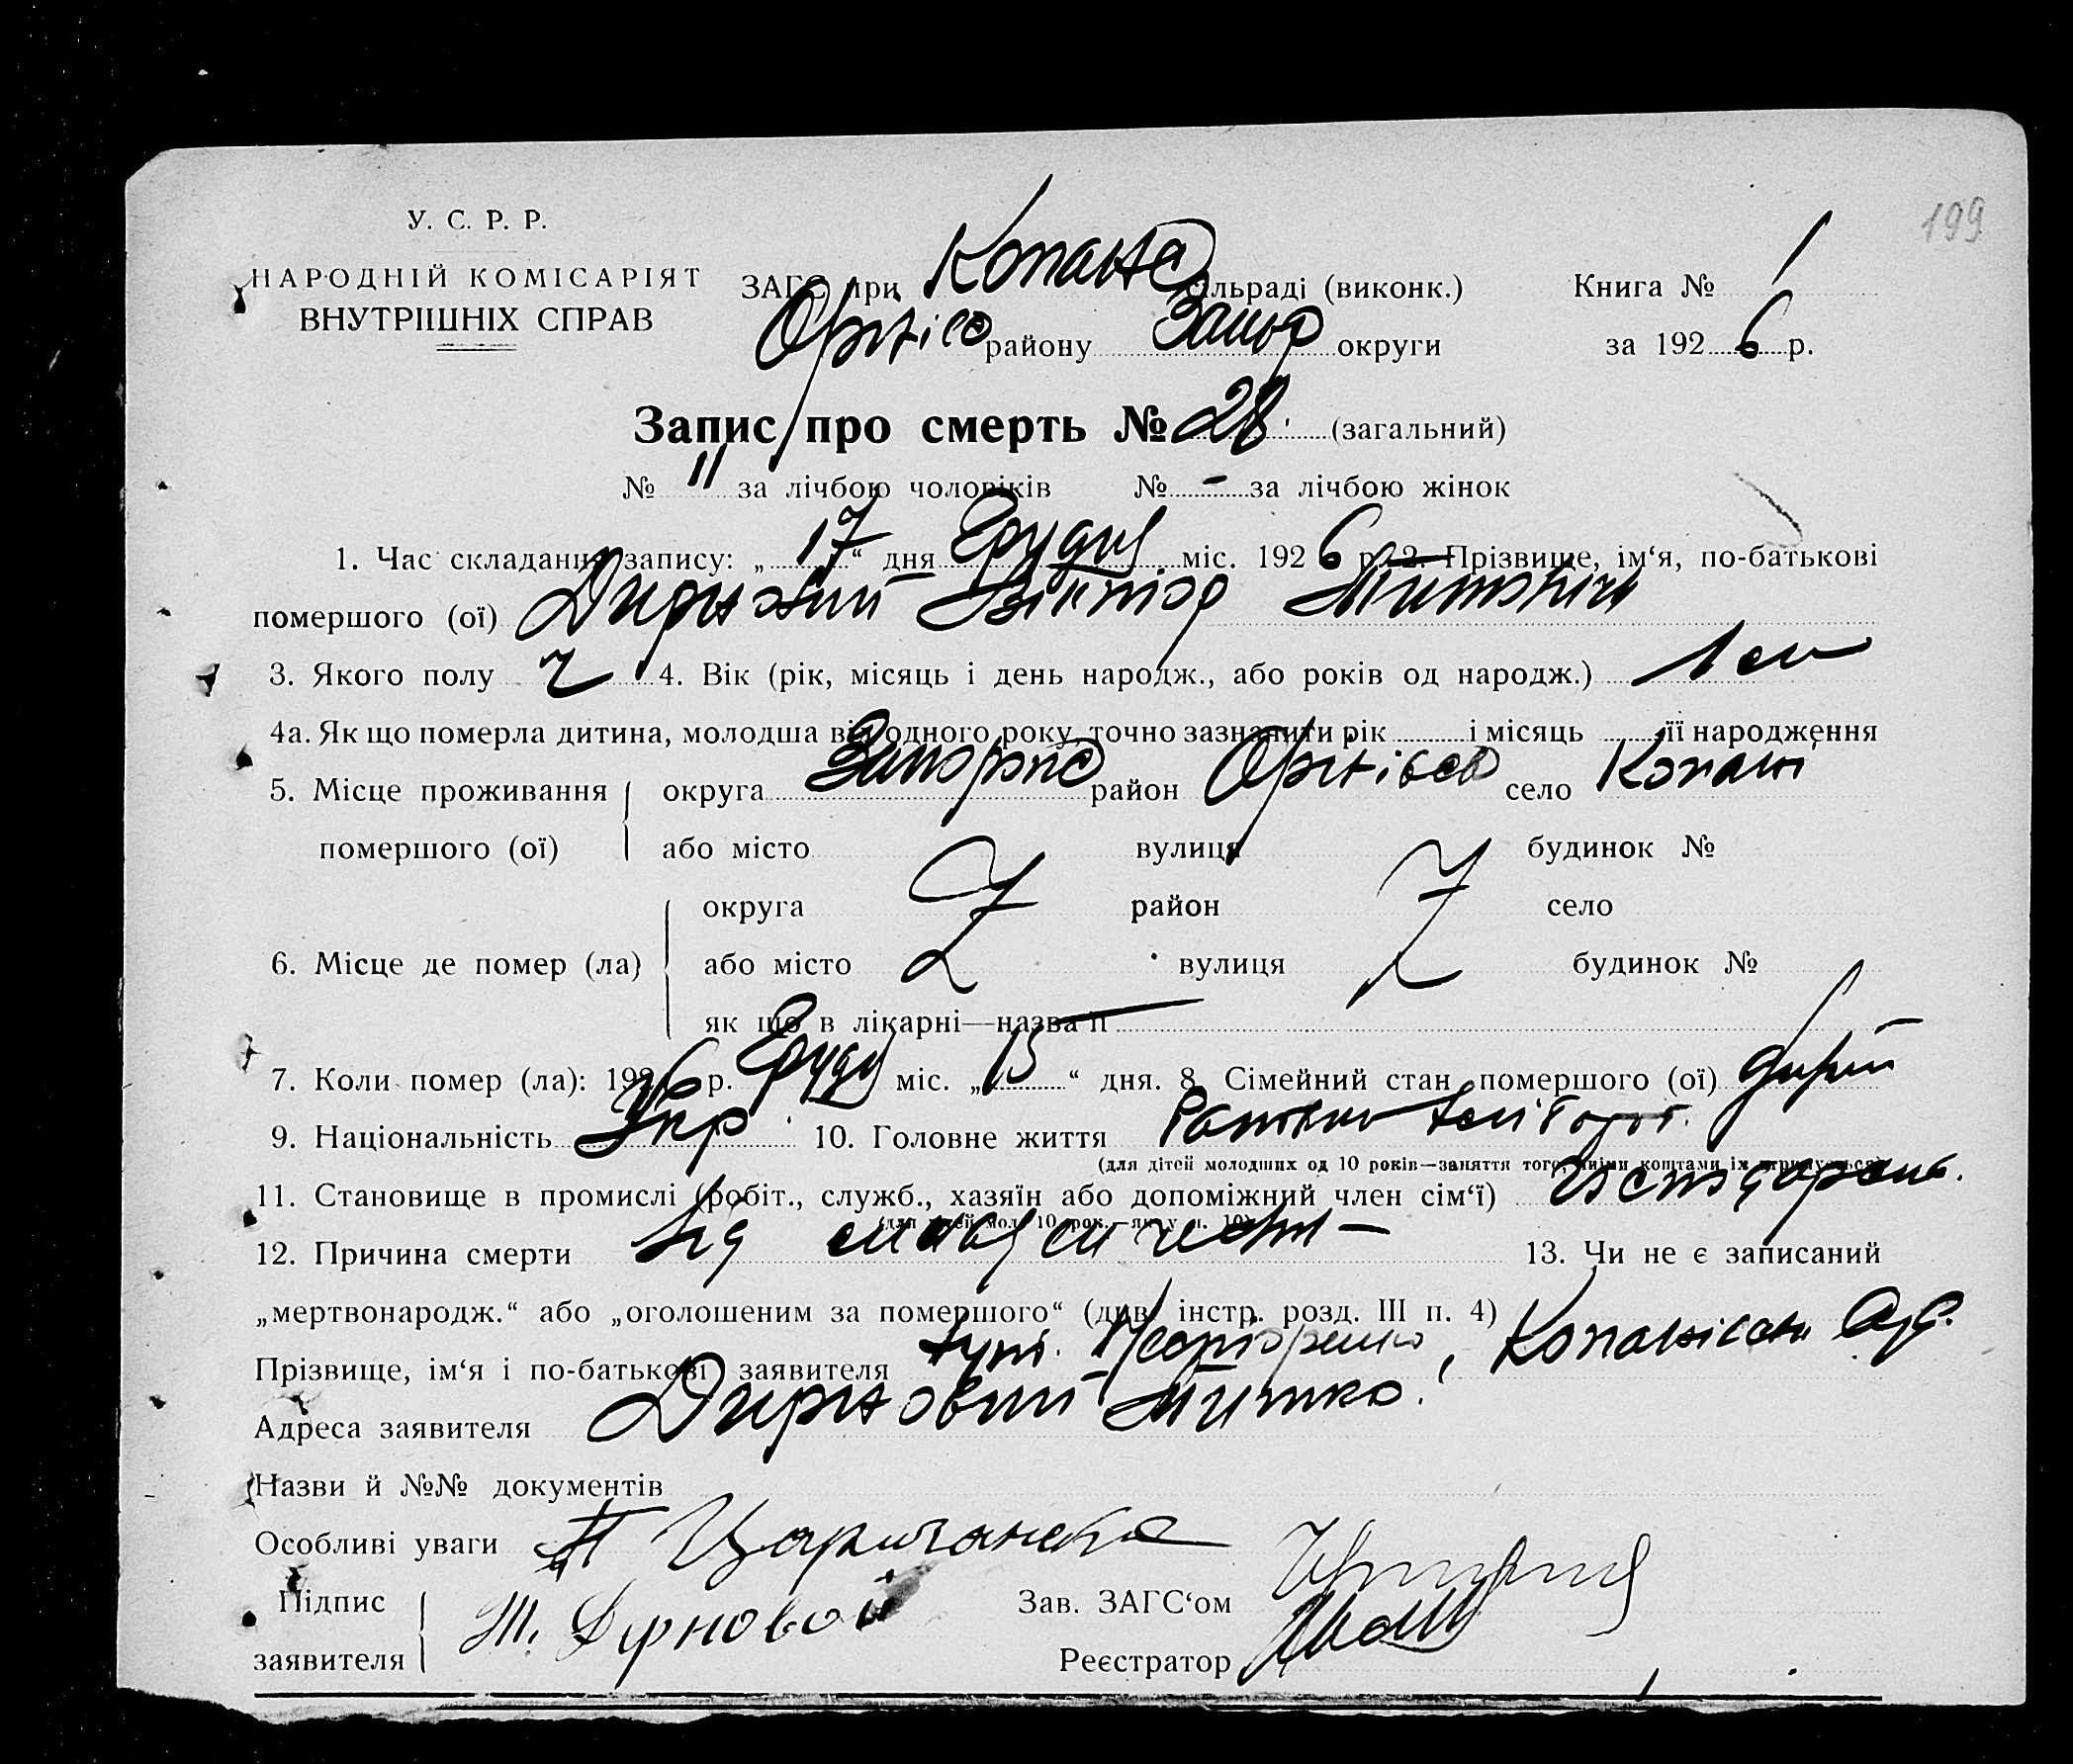 199
У. С. Р. Р.
НАРОДНІЙ КОМІСАРІЯТ
ВНУТРІШНІХ СПРАВ
ЗАГС при Копанс сільраді (виконк.) Книга № 1
Оріхівсь району Запор округи за 1926 р.
Запис про смерть № 28 (загальний)
№ 11 за лічбою чоловіків № - за лічбою жінок
1. Час складання запису: „17“ дня Грудня міс. 1926 р. 2. Прізвище, ім‘я, по-батькові
помершого (ої) Дирновий Віктор
3. Якого полу ч 4. Вік (рік, місяць і день народж., або років од народж.) 1
4а. Як що померла дитина, молодша від одного року, точно зазначити рік і місяць її народження
5. Місце проживання округа Запорозьс район село Копані
помершого (ої) або місто вулиця будинок №
округа район село
6. Місце де помер (ла) або місто вулиця будинок №
як що в лікарні—назва її
7. Коли помер (ла): 1926 р. Грудн міс. „15“ дня. 8. Сімейний стан помершого (ої)
9. Національність Укр 10. Головне життя
(для дітей молодших од 10 років—заняття того, чиїми коштами їх утримується)
11. Становище в промислі (робіт., служб., хазяїн або допоміжний член сім‘ї)
(для дітей мол. 10 рок.—як у п. 10)
12. Причина смерти від 13. Чи не є записаний
„мертвонародж.“ або „оголошеним за помершого“ (див. інстр. розд. III п. 4)
Прізвище, ім‘я і по-батькові заявителя
Адреса заявителя Дирновий Митко
Назви й №№ документів
Особливі уваги Царичанска
Підпис Зав. ЗАГС‘ом
заявителя М. Дирновой Реєстратор